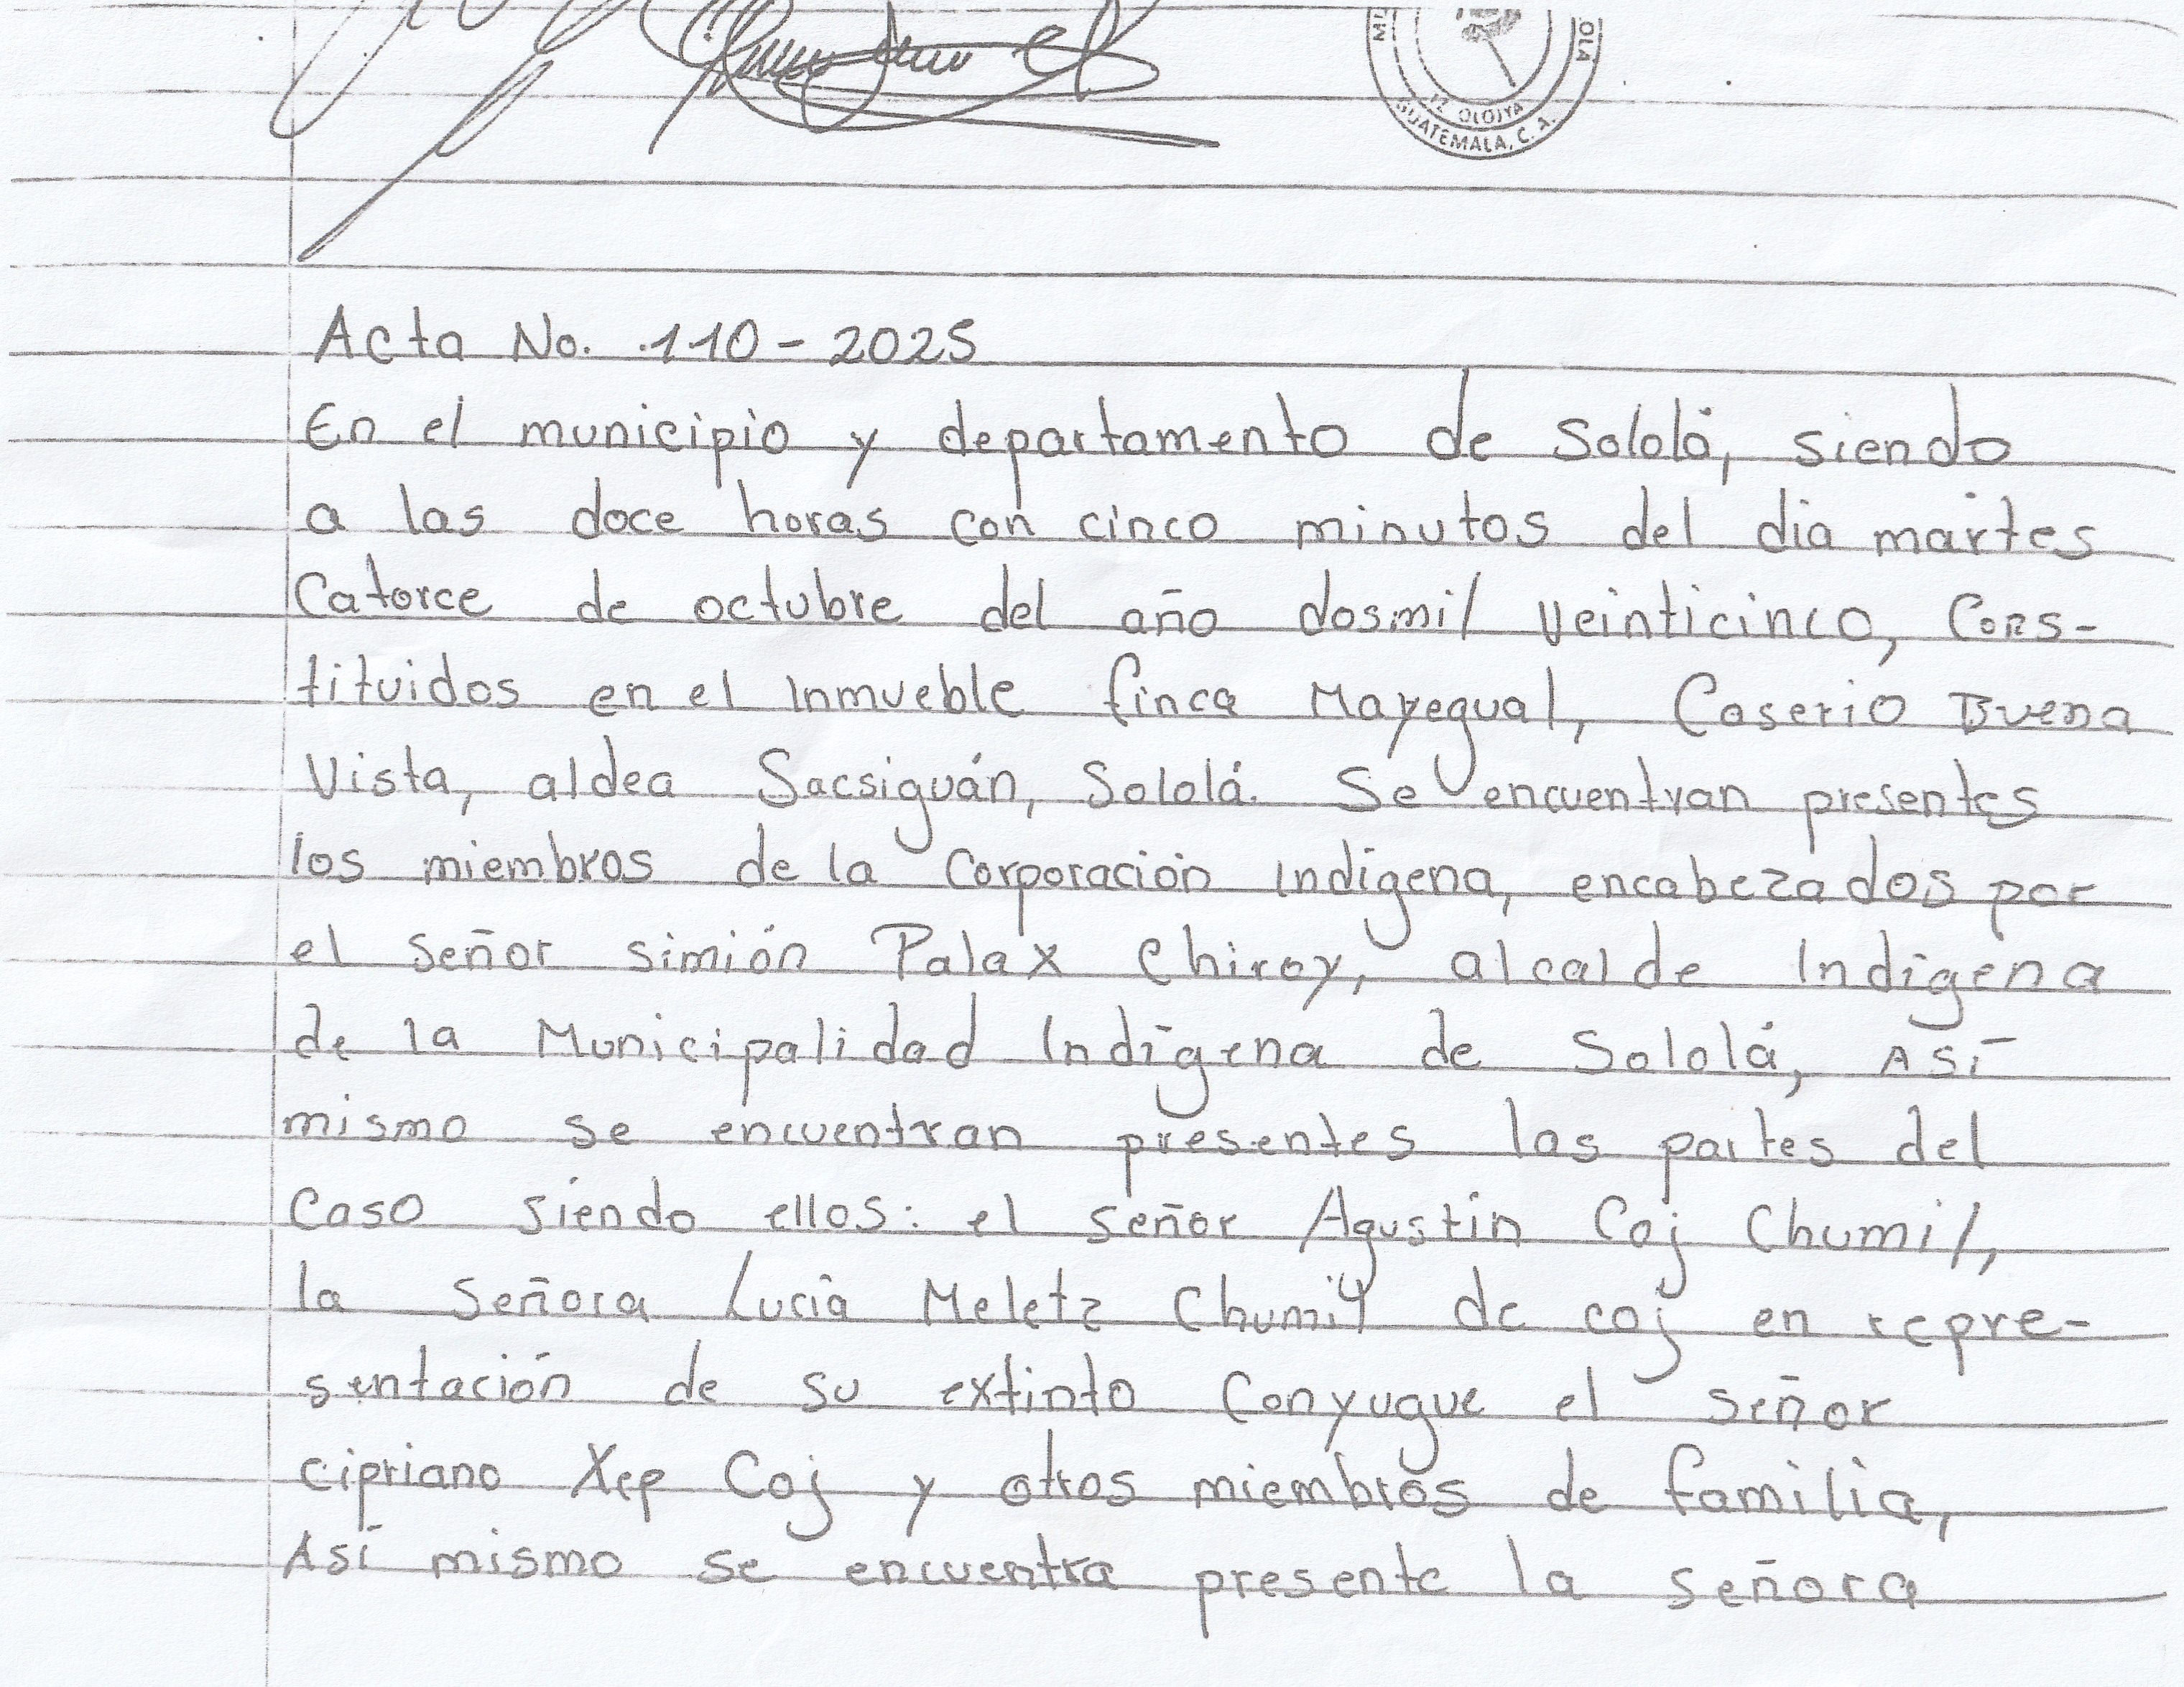 OLA
TZ OLOJYA
GUATEMALA, C. A.
Acta No. 110 - 2025
En el municipio y departamento de Sololá, siendo
a las doce horas con cinco minutos del dia martes
Catorce de octubre del año dosmil Veinticinco, Cons-
tituidos en el Inmueble finca Mayegual, Caserio Buena
Vista, aldea Sacsiguán, Sololá. Se encuentran presentes
los miembros de la Corporación Indigena, encabezados por
el señor simión Palax Chiroy, alcalde Indigena
de la Municipalidad Indigena de Sololá, Así
mismo se encuentran presentes las partes del
Caso siendo ellos: el señor Agustin Coj Chumil,
la señora Lucia Meletz Chumil de coj en repre-
sentación de su extinto Conyugue el señor
cipriano Xep Coj y otros miembros de familia,
Así mismo se encuentra presente la señora